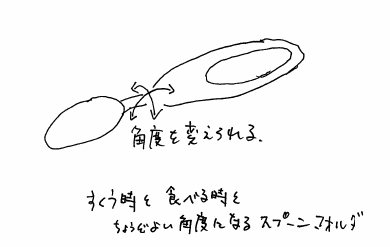 角度を変えられる.
すくう時と 食べる時と
ちょうどよい角度になる スプーン.フォルダ